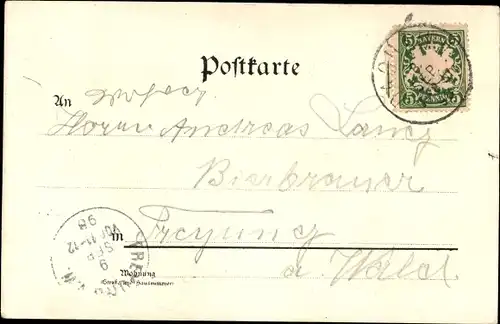 5 BAYERN 5
5 PFENNIG 5
Postkarte
An
Herrn Andreas Lang
Bierbrauer
in Freyung
a. Wald
Wohnung
9
SEP
11-12
98